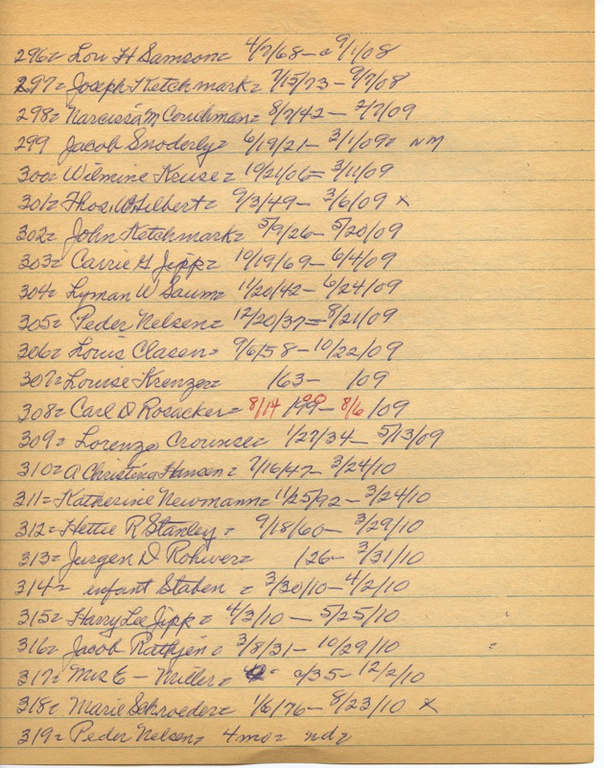 296= Lou H Samson= 4/7/68- 9/1/08
297= Joseph Ketchmark= 7/15/73- 9/7/08
298= Narcissa M Couchman= 8/7/42- 2/7/09
299 Jacob Snoderly= 6/19/21- 3/1/09= NM
300= Wilmine Kruse= 10/21/06= 3/11/09
301= Thos. W Gilbert= 9/3/49- 3/6/09 x
302= John Ketchmark= 5/9/26- 5/20/09
303= Carrie G Jipp= 10/19/69- 6/4/09
304= Lyman W Saum= 11/20/42- 6/24/09
305= Peder Nelsen= 12/20/37= 8/21/09
306= Louis Clasen= 9/6/58- 10/22/09
307= Louise Krenzer= /63- /09
308= Carl D Rosacker= 8/14 /99- 8/6 /09
309= Lorenzo Crounse= 1/27/34- 5/13/09
310= A Christina Hansen= 7/16/47- 3/24/10
311= Katherine Newmann= 11/25/92- 3/24/10
312= Hettie R Stanley= 9/18/60- 3/29/10
313= Jurgen D Rohwer= /26- 3/31/10
314= infant Staben = 3/30/10- 4/2/10
315= Harry Lee Jipp= 4/3/10- 5/25/10
316= Jacob Rathjen= 3/8/31- 10/29/10
317= Mrs E - Miller= /35- 12/2/10
318= Marie Schroeder= 1/6/76- 8/23/10 x
319= Peder Nelsen= 4 mo= nd=